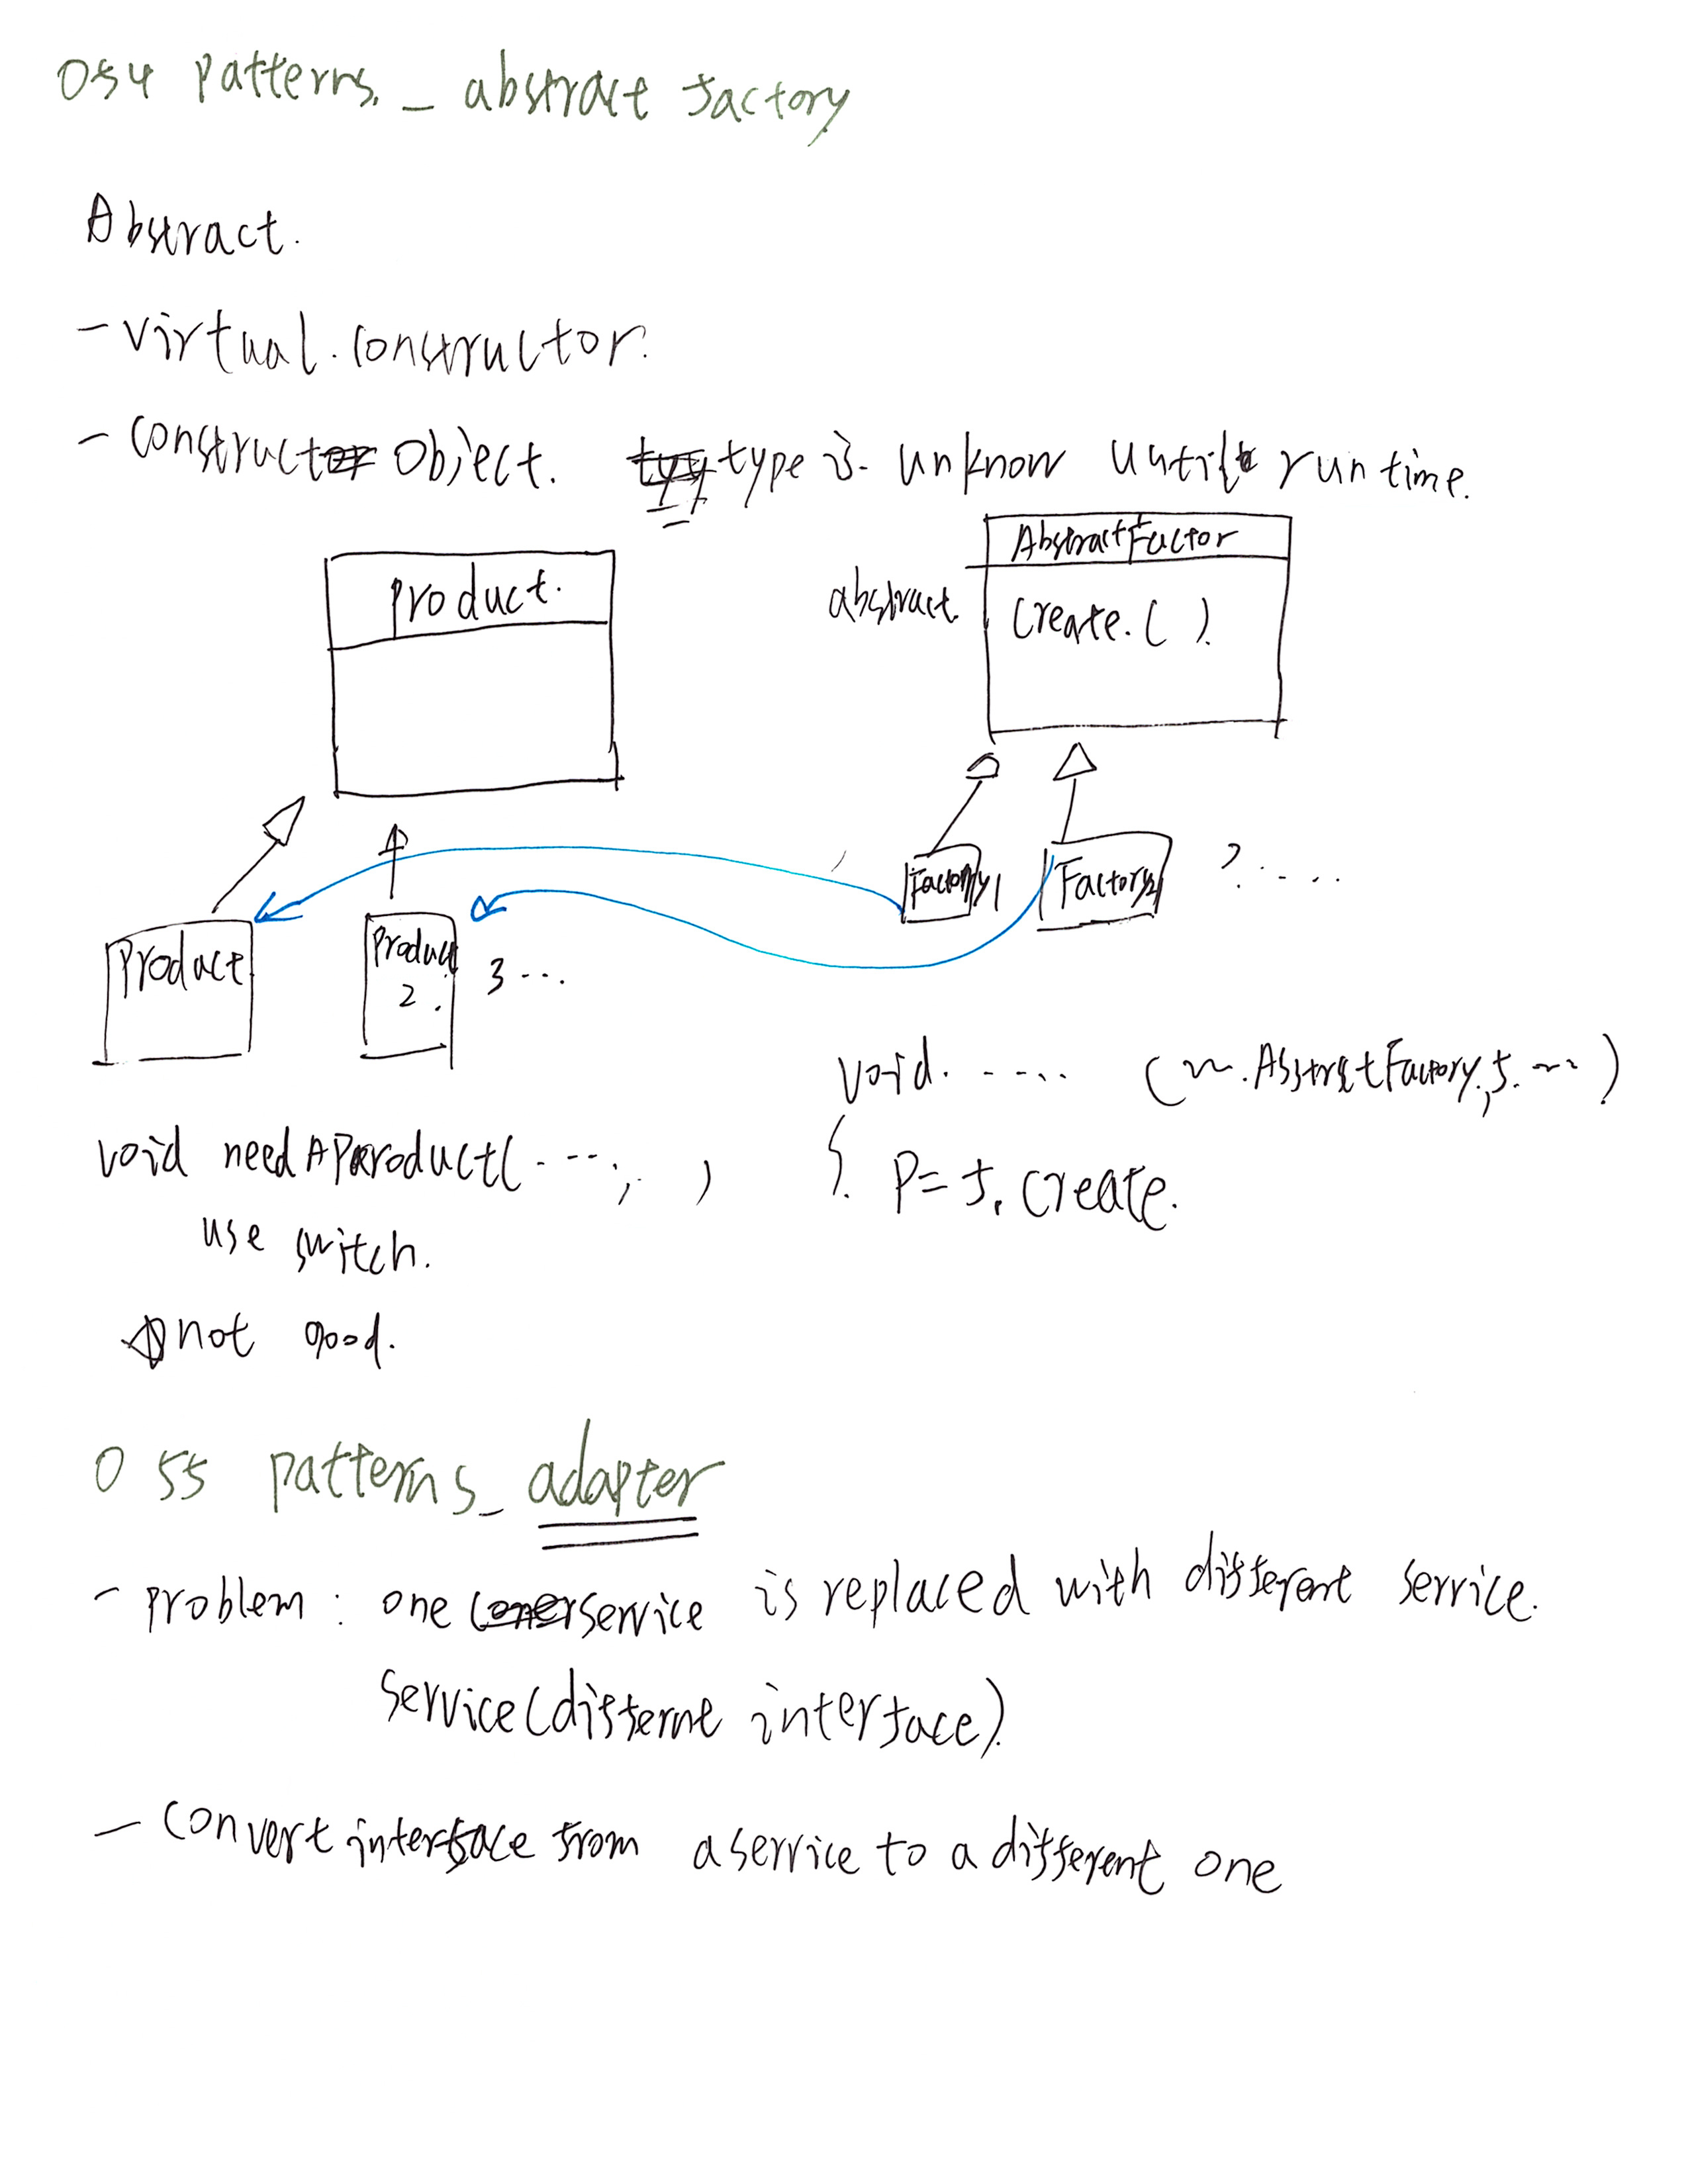 054 patterns. - abstract factory
Abstract.
- virtual constructor.
- construct object. type is unknow until run time.
product.
abstract.
AbstractFactor
create.( ).
product
product 2.
3 ...
Factory1
Factory2
? ....
void. ..... ( ~. AbstratFactory. f. ~~ )
{. p = f. create.
void needAProduct( . ...;. )
use switch.
not good.
055 patterns_ adapter
- problem: one service is replaced with different service.
service(differnt interface).
- convert interface from a service to a different one